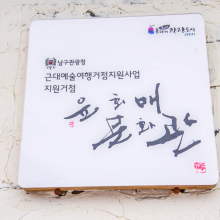 남구관광청
근대예술여행거점지원사업
지원거점
윤회매
문화관